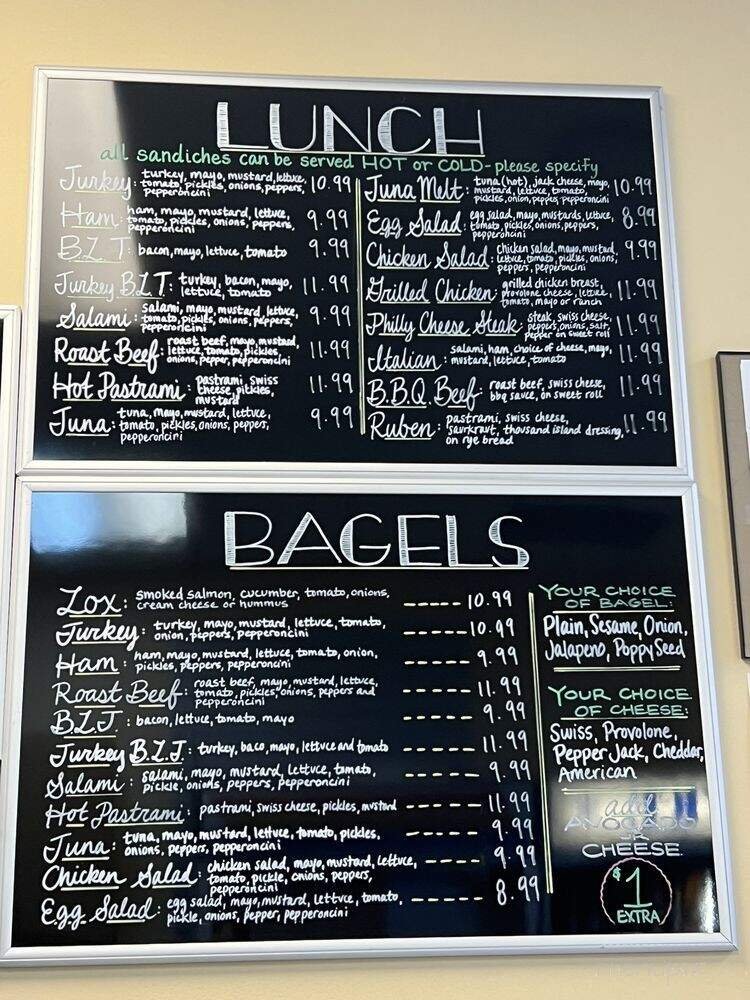 LUNCH
all sandiches can be served HOT or COLD - please specify
Turkey: turkey, mayo, mustard, lettuce, 10.99
tomato, pickles, onions, peppers,
pepperoncini
Ham: ham, mayo, mustard, lettuce, 9.99
tomato, pickles, onions, peppers,
pepperoncini
B.L.T: bacon, mayo, lettuce, tomato 9.99
Turkey B.L.T: turkey, bacon, mayo, 11.99
lettuce, tomato
Salami: salami, mayo, mustard, lettuce 9.99
tomato, pickles, onions, peppers,
pepperoncini
Roast Beef: roast beef, mayo, mustard, 11.99
lettuce, tomato, pickles,
onions, pepper, pepperoncini
Hot Pastrami: pastrami, swiss 11.99
cheese, pickles,
mustard
Tuna: tuna, mayo, mustard, lettuce, 9.99
tomato, pickles, onions, peppers,
pepperoncini
Tuna Melt: tuna (hot), jack cheese, mayo, 10.99
mustard, lettuce, tomato,
pickles, onion, peppers, pepperoncini
Egg Salad: egg salad, mayo, mustards, lettuce, 8.99
tomato, pickles, onions, peppers,
pepperoncini
Chicken Salad: chicken salad, mayo, mustard, 9.99
lettuce, tomato, pickles, onions,
peppers, pepperoncini
Grilled Chicken: grilled chicken breast, 11.99
provolone cheese, lettuce,
tomato, mayo or ranch
Philly Cheese Steak: steak, swiss cheese, 11.99
peppers, onions, salt,
pepper on sweet roll
Italian: salami, ham, choice of cheese, mayo, 11.99
mustard, lettuce, tomato
B.B.Q. Beef: roast beef, swiss cheese, 11.99
bbq sauce, on sweet roll
Ruben: pastrami, swiss cheese, 11.99
saurkraut, thousand island dressing,
on rye bread
BAGELS
Lox: smoked salmon, cucumber, tomato, onions, ----- 10.99
cream cheese or hummus
Turkey: turkey, mayo, mustard, lettuce, tomato, ----- 10.99
onion, peppers, pepperoncini
Ham: ham, mayo, mustard, lettuce, tomato, onion, ----- 9.99
pickles, peppers, pepperoncini
Roast Beef: roast beef, mayo, mustard, lettuce, ----- 11.99
tomato, pickles, onions, peppers and
pepperoncini
B.L.T: bacon, lettuce, tomato, mayo ----- 9.99
Turkey B.L.T: turkey, baco, mayo, lettuce and tomato ----- 11.99
Salami: salami, mayo, mustard, lettuce, tomato, ----- 9.99
pickle, onions, peppers, pepperoncini
Hot Pastrami: pastrami, swiss cheese, pickles, mustard ----- 11.99
Tuna: tuna, mayo, mustard, lettuce, tomato, pickles, ----- 9.99
onions, peppers, pepperoncini
Chicken Salad: chicken salad, mayo, mustard, lettuce, ----- 9.99
tomato, pickle, onions, peppers,
pepperoncini
Egg Salad: egg salad, mayo, mustard, lettuce, tomato, ----- 8.99
pickle, onions, pepper, pepperoncini
YOUR CHOICE
OF BAGEL:
Plain, Sesame, Onion,
Jalapeno, Poppy Seed
YOUR CHOICE
OF CHEESE:
Swiss, Provolone,
Pepper Jack, Cheddar,
American
add
AVOCADO
OR
CHEESE
$1
EXTRA